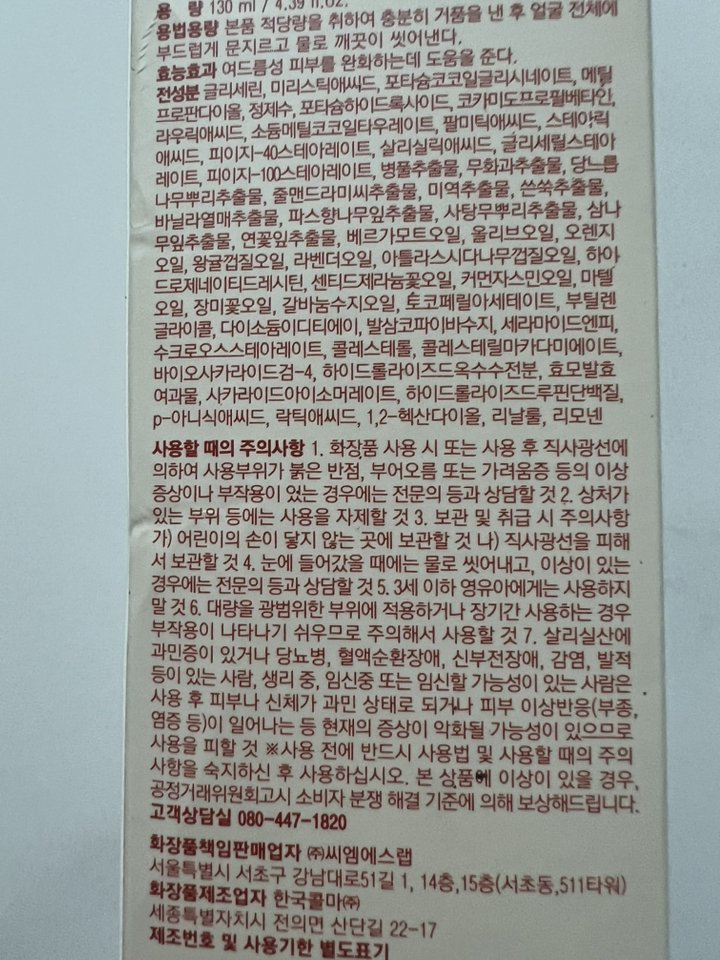 용 량 130 ml / 4.39 fl.oz.
용법용량 본품 적당량을 취하여 충분히 거품을 낸 후 얼굴 전체에
부드럽게 문지르고 물로 깨끗이 씻어낸다.
효능효과 여드름성 피부를 완화하는데 도움을 준다.
전성분 글리세린, 미리스틱애씨드, 포타슘코코일글리시네이트, 메틸
프로판다이올, 정제수, 포타슘하이드록사이드, 코카미도프로필베타인,
라우릭애씨드, 소듐메틸코코일타우레이트, 팔미틱애씨드, 스테아릭
애씨드, 피이지-40스테아레이트, 살리실릭애씨드, 글리세릴스테아
레이트, 피이지-100스테아레이트, 병풀추출물, 무화과추출물, 당느릅
나무뿌리추출물, 줄맨드라미씨추출물, 미역추출물, 쓴쑥추출물,
바닐라열매추출물, 파스향나무잎추출물, 사탕무뿌리추출물, 삼나
무잎추출물, 연꽃잎추출물, 베르가모트오일, 올리브오일, 오렌지
오일, 왕귤껍질오일, 라벤더오일, 아틀라스시다나무껍질오일, 하이
드로제네이티드레시틴, 센티드제라늄꽃오일, 커먼자스민오일, 마텔
오일, 장미꽃오일, 갈바눔수지오일, 토코페릴아세테이트, 부틸렌
글라이콜, 다이소듐이디티에이, 발삼코파이바수지, 세라마이드엔피,
수크로오스스테아레이트, 콜레스테롤, 콜레스테릴마카다미에이트,
바이오사카라이드검-4, 하이드롤라이즈드옥수수전분, 효모발효
여과물, 사카라이드아이소머레이트, 하이드롤라이즈드루핀단백질,
p-아니식애씨드, 락틱애씨드, 1,2-헥산다이올, 리날룰, 리모넨
사용할 때의 주의사항 1. 화장품 사용 시 또는 사용 후 직사광선에
의하여 사용부위가 붉은 반점, 부어오름 또는 가려움증 등의 이상
증상이나 부작용이 있는 경우에는 전문의 등과 상담할 것 2. 상처가
있는 부위 등에는 사용을 자제할 것 3. 보관 및 취급 시 주의사항
가) 어린이의 손이 닿지 않는 곳에 보관할 것 나) 직사광선을 피해
서 보관할 것 4. 눈에 들어갔을 때에는 물로 씻어내고, 이상이 있는
경우에는 전문의 등과 상담할 것 5. 3세 이하 영유아에게는 사용하지
말 것 6. 대량을 광범위한 부위에 적용하거나 장기간 사용하는 경우
부작용이 나타나기 쉬우므로 주의해서 사용할 것 7. 살리실산에
과민증이 있거나 당뇨병, 혈액순환장애, 신부전장애, 감염, 발적
등이 있는 사람, 생리 중, 임신중 또는 임신할 가능성이 있는 사람은
사용 후 피부나 신체가 과민 상태로 되거나 피부 이상반응(부종,
염증 등)이 일어나는 등 현재의 증상이 악화될 가능성이 있으므로
사용을 피할 것 ※사용 전에 반드시 사용법 및 사용할 때의 주의
사항을 숙지하신 후 사용하십시오. 본 상품에 이상이 있을 경우,
공정거래위원회고시 소비자 분쟁 해결 기준에 의해 보상해드립니다.
고객상담실 080-447-1820
화장품책임판매업자 ㈜씨엠에스랩
서울특별시 서초구 강남대로51길 1, 14층,15층(서초동,511타워)
화장품제조업자 한국콜마㈜
세종특별자치시 전의면 산단길 22-17
제조번호 및 사용기한 별도표기